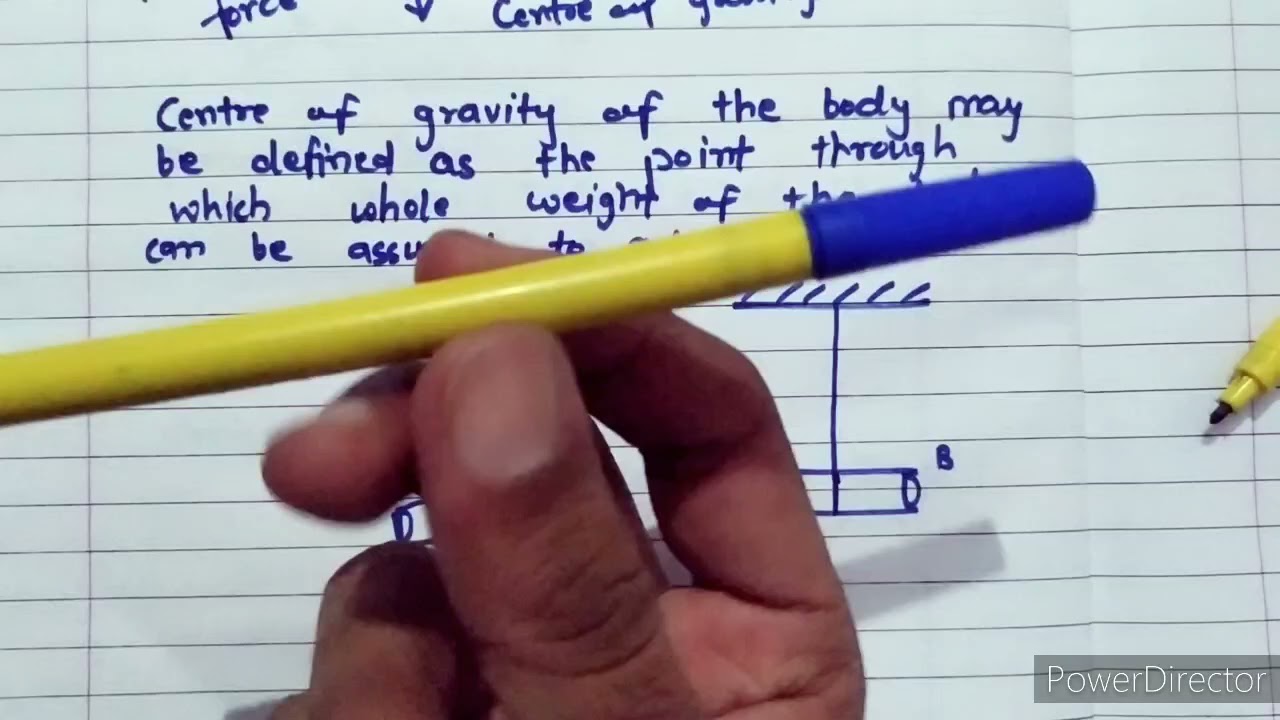 force Centre of gravity
Centre of gravity of the body may
be defined as the point through
which whole weight of the
can be to
B
D
PowerDirector